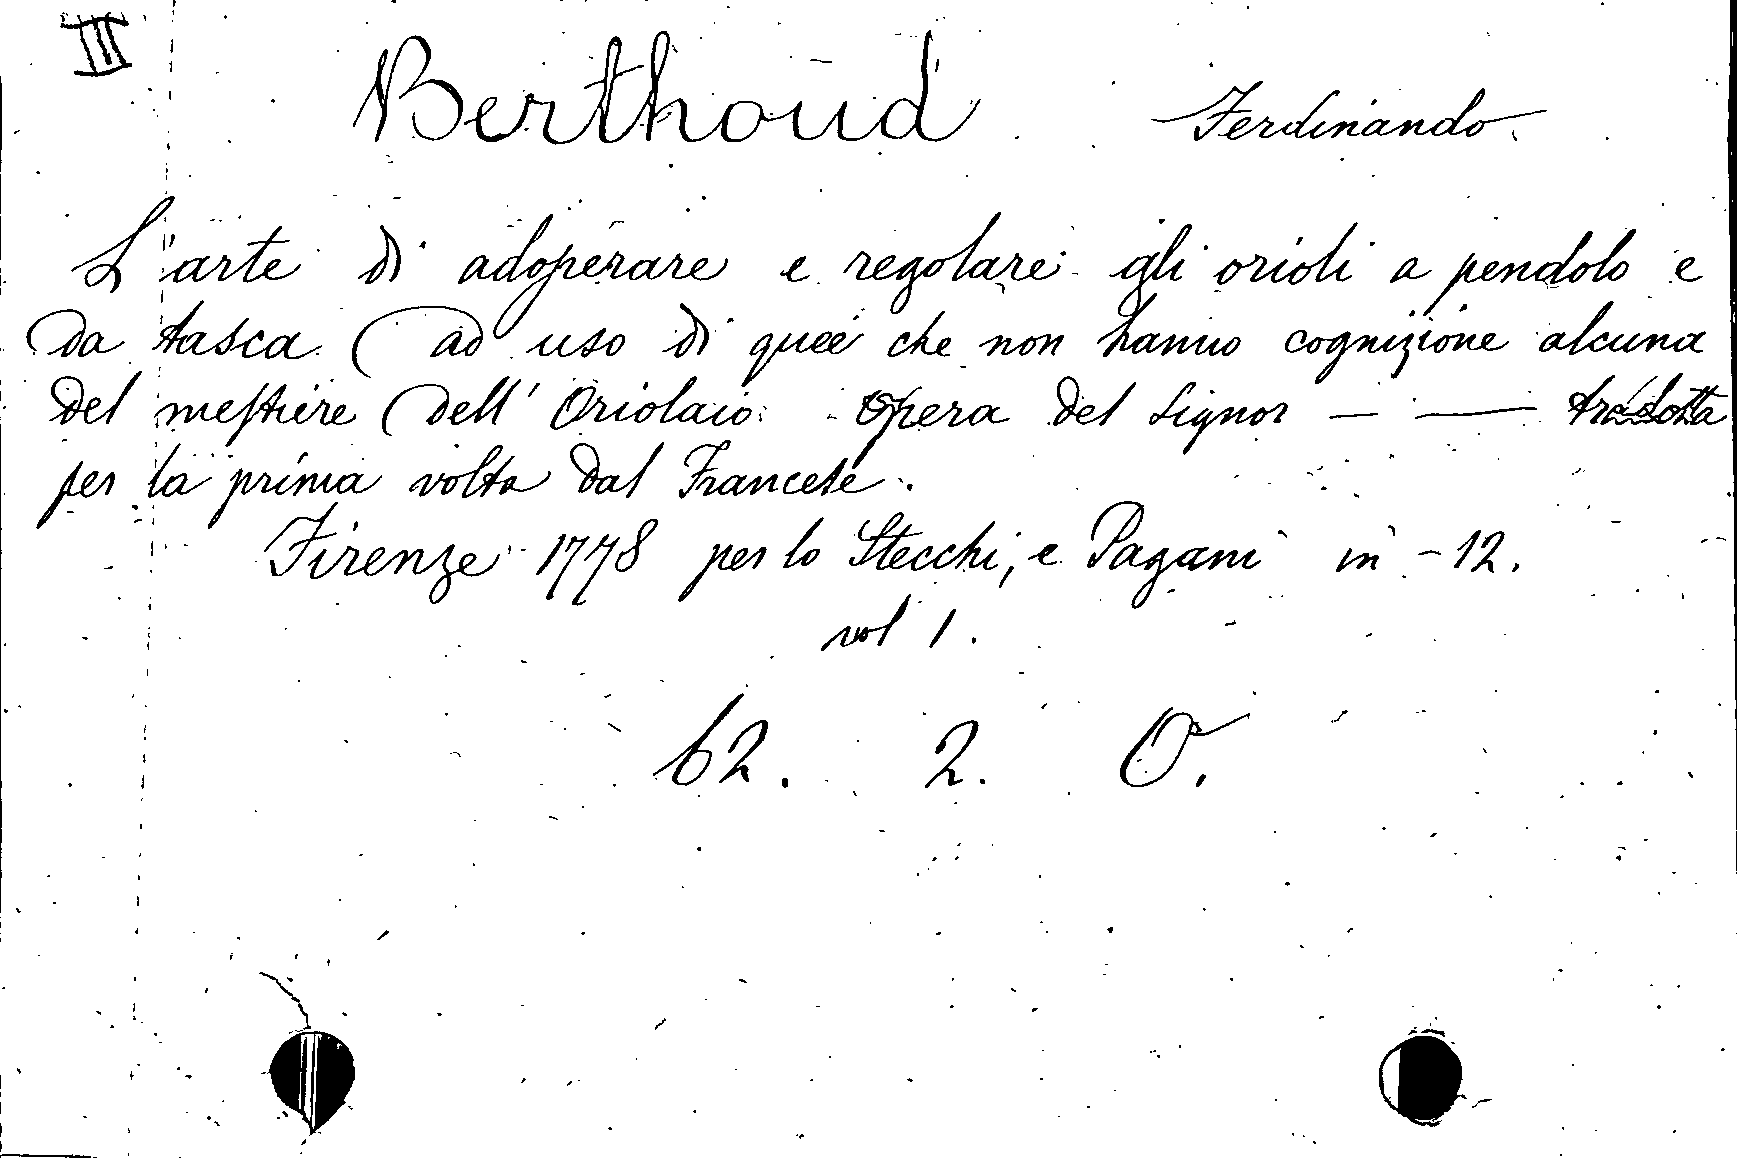 III
Berthoud Ferdinando.
L'arte di adoperare e regolare gli orioli a pendolo e
da tasca ad uso di quei che non hanno cognizione alcuna
del mestiere dell' Oriolaio. Opera del Signor — — tradotta
per la prima volta dal Francese.
Firenze 1778 per lo Stecchi, e Pagani in - 12.
vol 1.
62. 2. O.